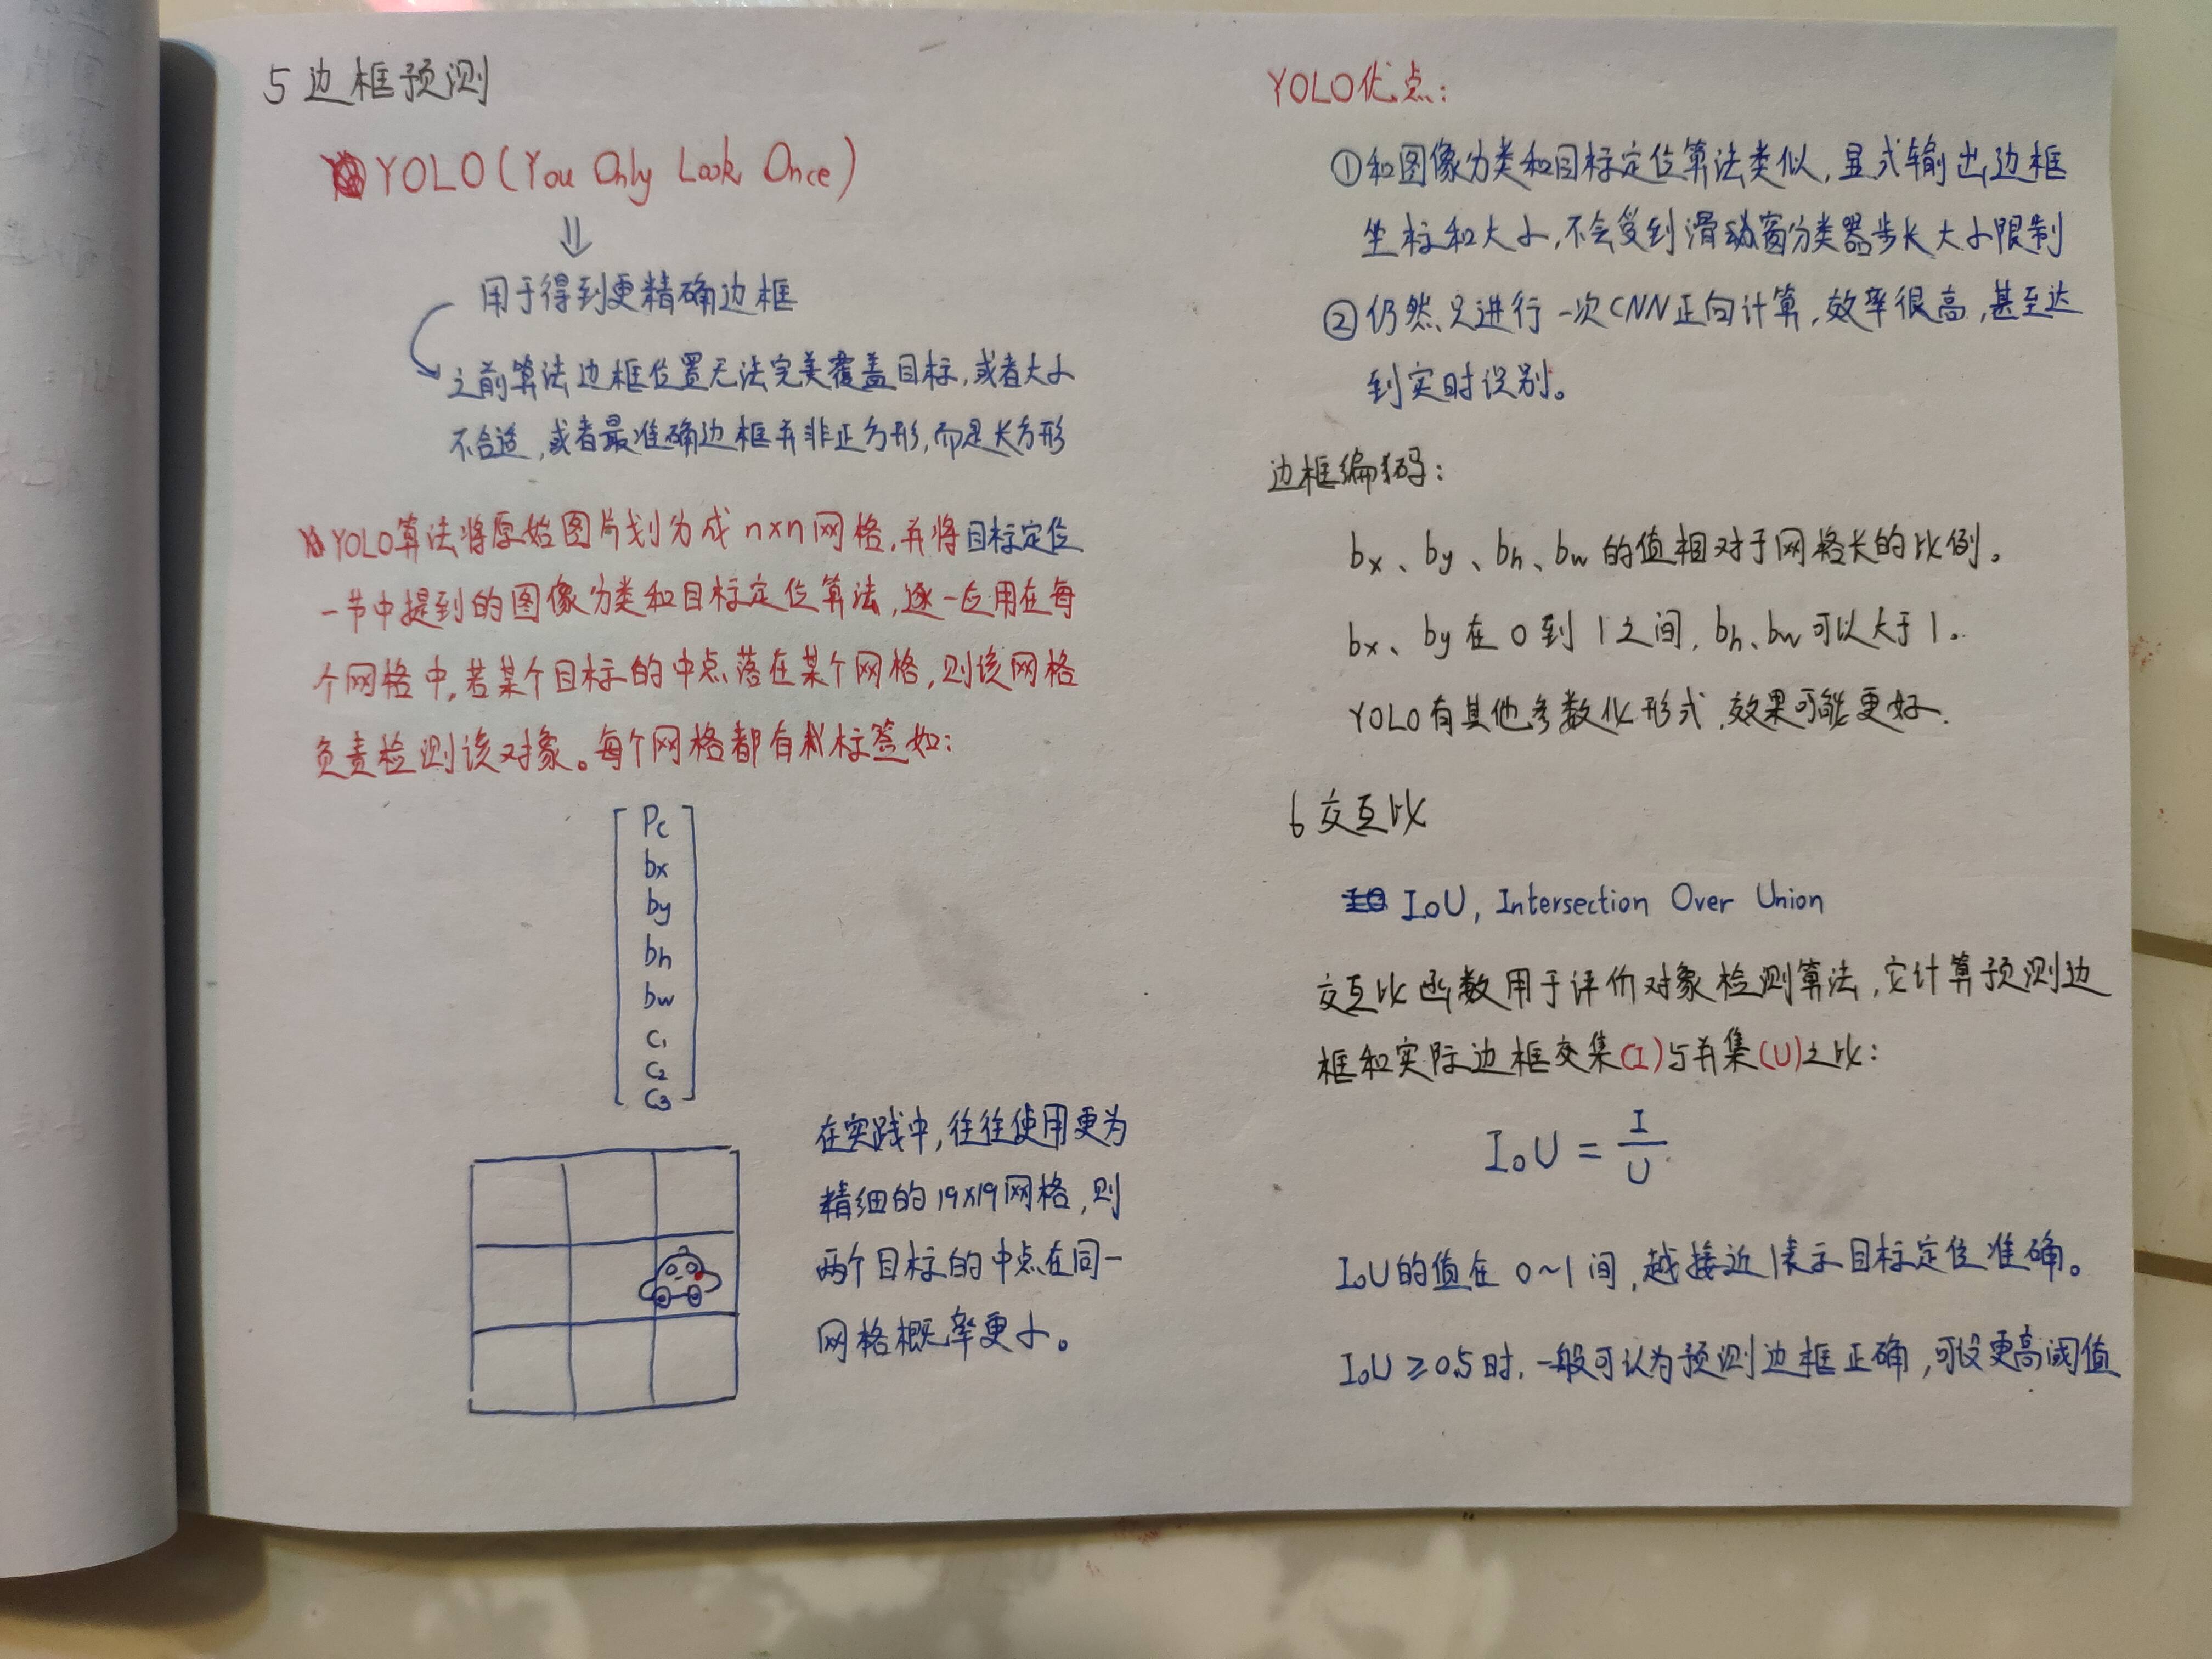 5 边框预测
YOLO(You Only Look Once)
⇓
用于得到更精确边框
之前算法边框位置无法完美覆盖目标,或者大小
不合适,或者最准确边框并非正方形,而是长方形
YOLO算法将原始图片划分成 n×n 网格,并将目标定位
一节中提到的图像分类和目标定位算法,逐一应用在每
个网格中,若某个目标的中点落在某个网格,则该网格
负责检测该对象。每个网格都有标签如:
Pc
bx
by
bh
bw
C₁
C₂
C₃
在实践中,往往使用更为
精细的 19×19 网格,则
两个目标的中点在同一
网格概率更小。
YOLO优点:
①和图像分类和目标定位算法类似,显式输出边框
坐标和大小,不会受到滑动窗分类器步长大小限制
②仍然只进行一次CNN正向计算,效率很高,甚至达
到实时识别。
边框编码:
bx、by、bh、bw 的值相对于网格长的比例。
bx、by 在 0 到 1 之间,bh、bw 可以大于 1。
YOLO有其他参数化形式,效果可能更好.
6 交互比
IoU, Intersection Over Union
交互比函数用于评价对象检测算法,它计算预测边
框和实际边框交集(I)与并集(U)之比:
IoU = I/U
IoU的值在 0~1 间,越接近1表示目标定位准确。
IoU ≥ 0.5时,一般可认为预测边框正确,可设更高阈值